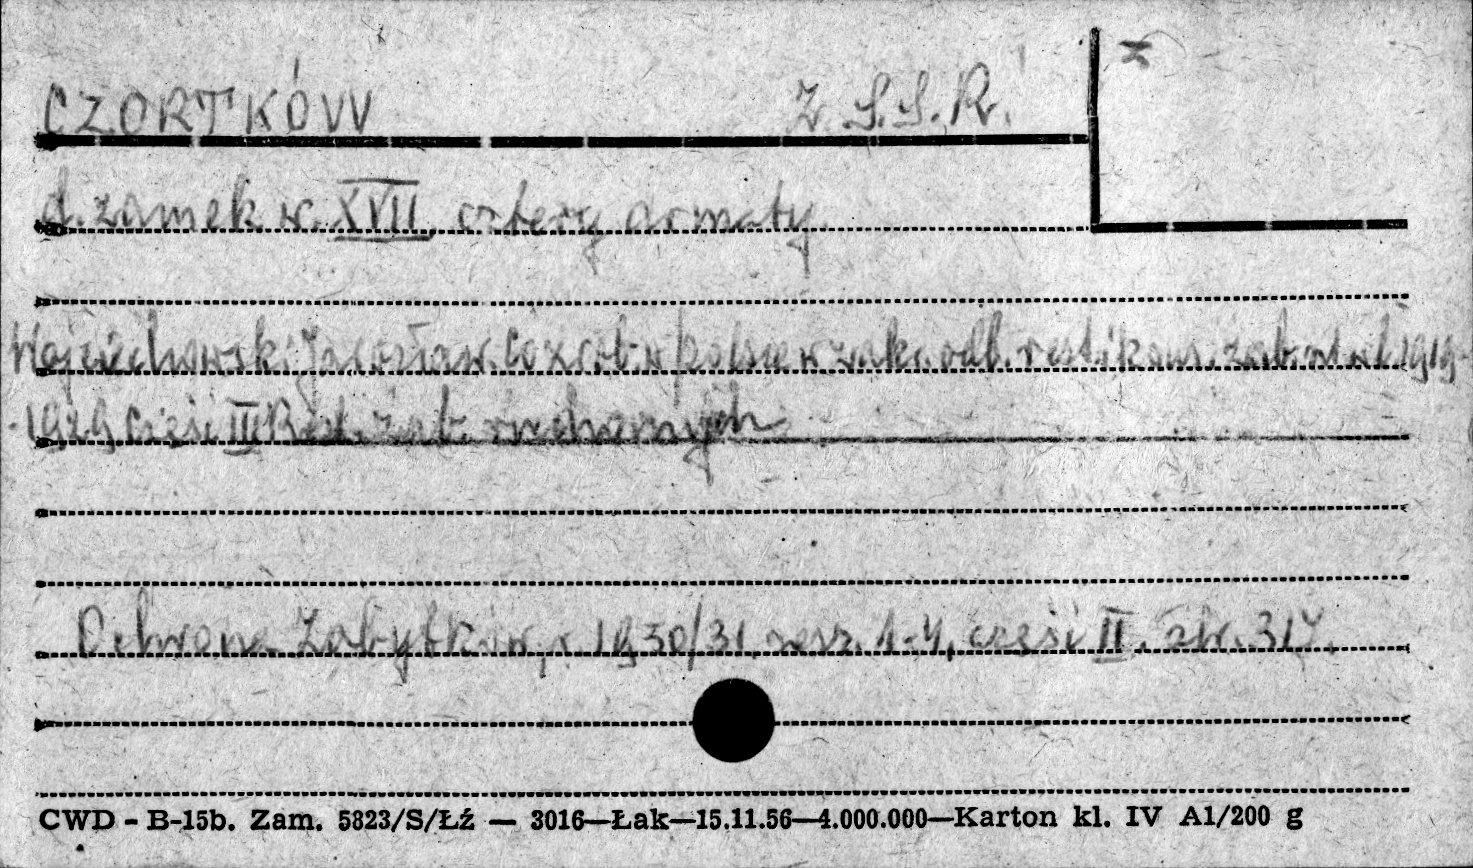 CZORTKÓW Z.S.S.R.
d. zamek w. XVII, cztery armaty
Wojciechowski Jarosław. Co zrob. w Polsce w zak. odb. rest. i kons. zab. szt. w l. 1919-
-1929 Część III Rest. zab. ruchomych
Ochrona Zabytków, r. 1930/31 zesz. 1-4, część II. str. 317.
CWD - B-15b. Zam. 5823/S/Łź — 3016—Łak—15.11.56—4.000.000—Karton kl. IV A1/200 g